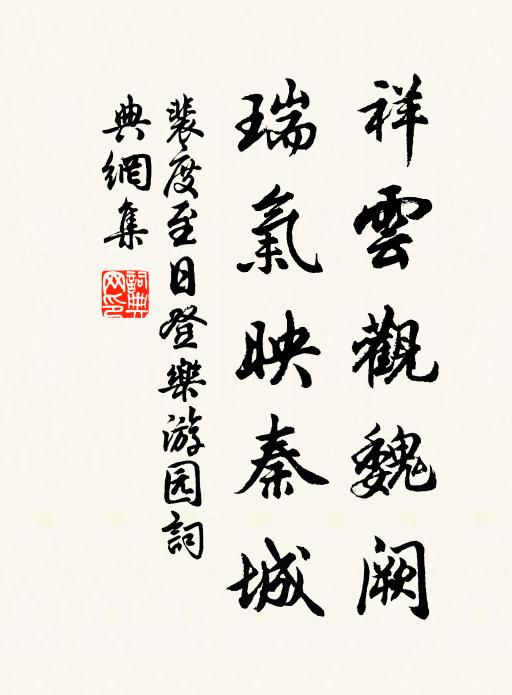 祥雲觀魏闕
瑞氣映秦城
裴度至日登樂游园詞
典網集
詞典
网印